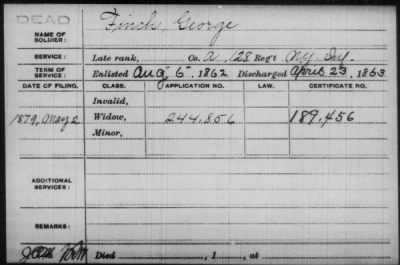 DEAD
NAME OF SOLDIER: Finch, George
SERVICE: Late rank, Co. A, 128 Reg't N.Y. Inf.
TERM OF SERVICE: Enlisted Aug 6, 1862 Discharged April 23, 1863
DATE OF FILING. CLASS. APPLICATION NO. LAW. CERTIFICATE NO.
Invalid,
1879, May 2 Widow, 244.856 189.456
Minor,
ADDITIONAL SERVICES:
REMARKS:
Died , 1 , at